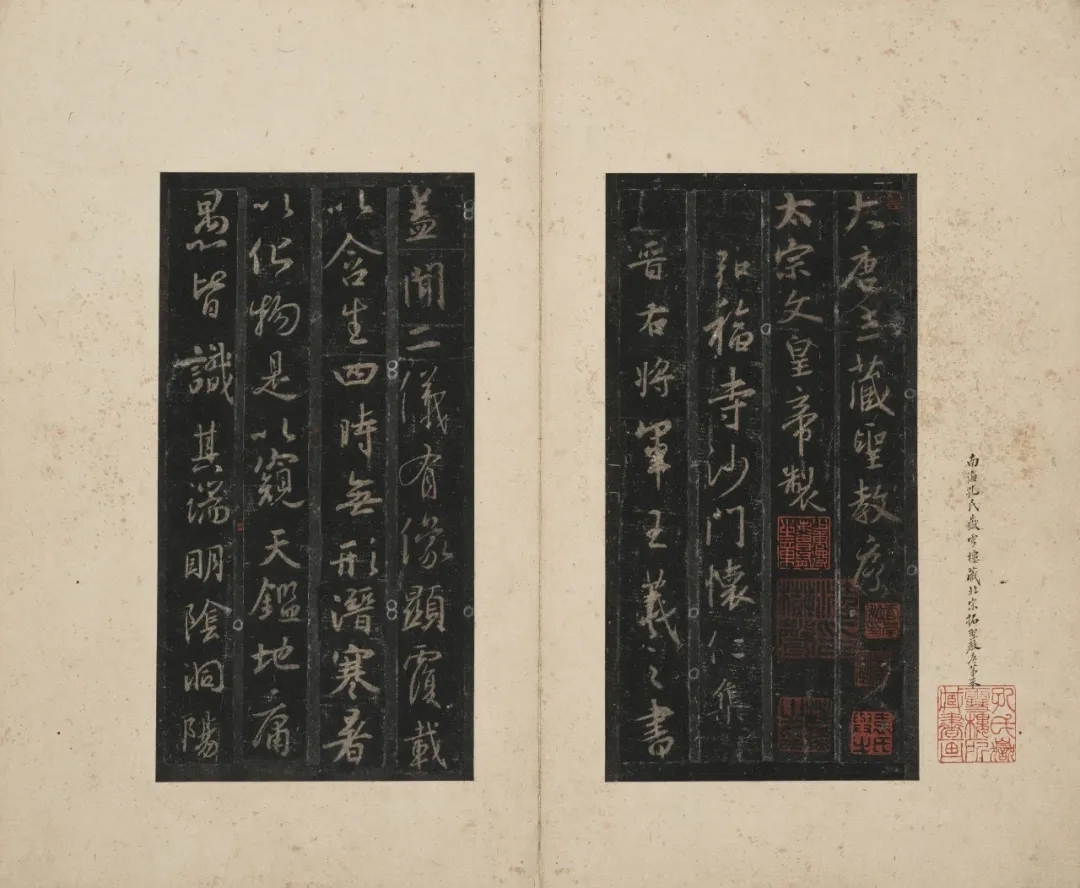 南海孔氏嶽雪樓藏北宋拓聖教序第本
孔氏嶽雪樓所藏書画
大唐三藏聖教序
太宗文皇帝製
弘福寺沙門懷仁集
晉右將軍王羲之書
蓋聞二儀有像顯覆載
以含生四時無形潛寒暑
以化物是以窺天鑑地庸
愚皆識其端明陰洞陽